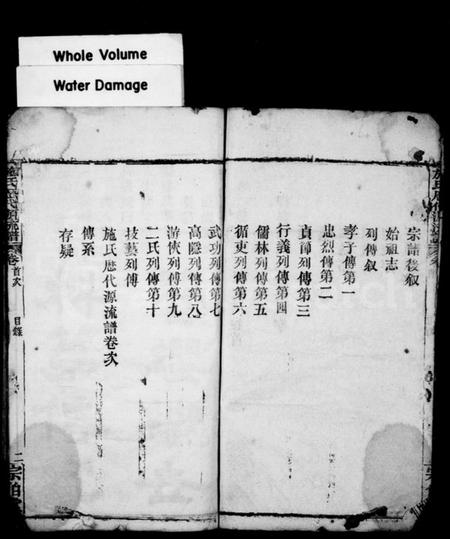 Whole Volume
Water Damage
宗譜後叙
始祖志
列傳叙
孝子傳第一
忠烈傳第二
貞節列傳第三
行義列傳第四
儒林列傳第五
循吏列傳第六
武功列傳第七
高隱列傳第八
游俠列傳第九
二氏列傳第十
技藝列傳
施氏歷代源流譜卷次
傳系
存疑
卷首次
目錄
二